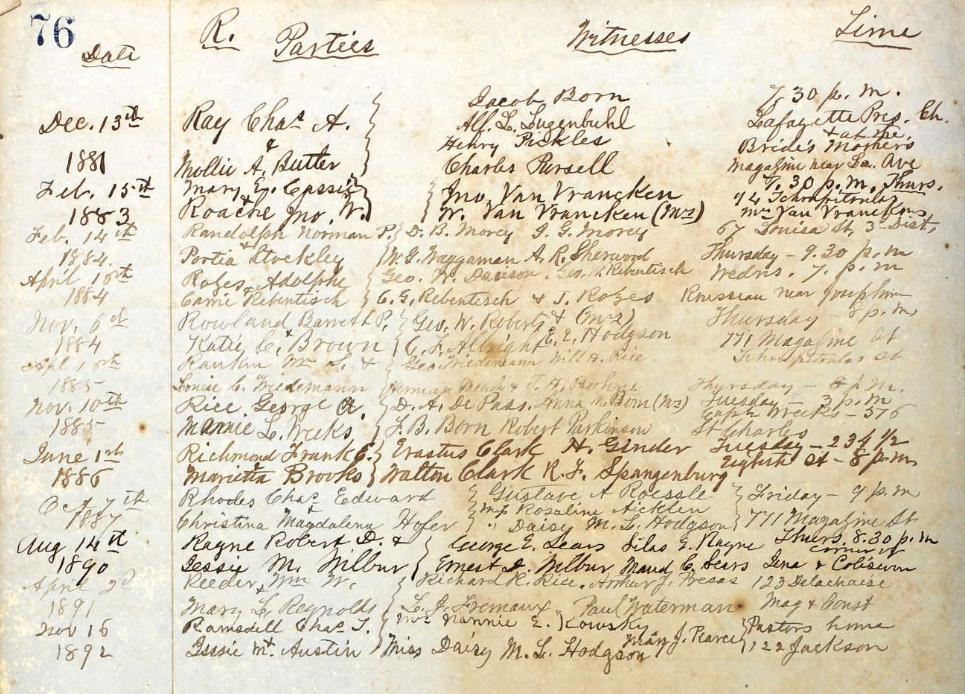 76 R.
Date Parties Witnesses Time
Jacob Born 7.30 p.m.
Dec. 13th Ray Chas A. Alf. L. Lugenbuhl Lafayette Pres. Ch.
& Henry Pickles & at the
1881 Mollie A. Butler Charles Pursell Bride's Mothers
Magazine near La. Ave
Feb. 15th Mary E. Cassi Jno. Van Vrancken 7.30 p.m. Thurs.
1883 Roache Jno. W. W. Van Vrancken (Mrs) 94 Tchoupitoulas
Mrs Van Vranckens
Feb. 14th Randolph Norman P. D. B. Morey G. G. Morey 67 Louisa St, 3d Dist,
1884 Portia Stockley M. G. Waggaman A. R. Sherwood Thursday - 9.30 p.m
April Roges Adolphe Geo. W. Davison Geo. Rebentisch Wedns. 7. p.m
1884 Carrie Rebentisch C. G. Rebentisch & J. Roges Rousseau near Josephine
Nov. 6th Rowland Barrett P. Geo. W. Roberts & (Mrs) Thursday - 8 p.m
1884 Katie C. Brown C. F. Albright E. E. Hodgson 771 Magazine St
Apl Rankin Wm L. & Geo. Wiedemann Will H. Rice Tchoupitoulas St
1885 Louise C. Wiedemann Herman & J. H. Bohne Thursday - 8 p.m.
Nov. 10th Rice, George A. D. A. De Pass. Anna Born (Mrs) Tuesday - 3 p.m
1885 Mamie L. Weeks J. B. Born Robert Parkinson Capt Weeks - 576
St Charles
June 1st Richmond Frank E. Erastus Clark H. Ginder Tuesday - 234 1/2
1886 Marietta Brooks Walton Clark R. F. Spangenburg Eighth St - 8 p.m
Oct. 7th Rhodes Chas Edward Gustave A Roessle Friday - 9 p.m
1887 & Mrs Rosaline Aicklen
Christina Magdalena Hofer " Daisy M. L. Hodgson 771 Magazine St
Aug 14th Rayne Robert D. & George E. Sears Silas E. Rayne Thurs. 8.30 p.m
corner of
1890 Jessie M. Wilbur Ernest D. Wilbur Maud C. Sears Lena & Coliseum
April 2d Reeder, Wm W. Richard R. Rice, Arthur J. Presas 123 Delachaise
1891 Mary L. Reynolds L. J. Fremaux Paul Waterman Mag & Const
Nov 16 Ramsdell Chas T. Mrs Nannie E. Kowsky Pastors home
1892 Jessie M. Austin Miss Daisy M. L. Hodgson Mary J. Pearce 122 Jackson